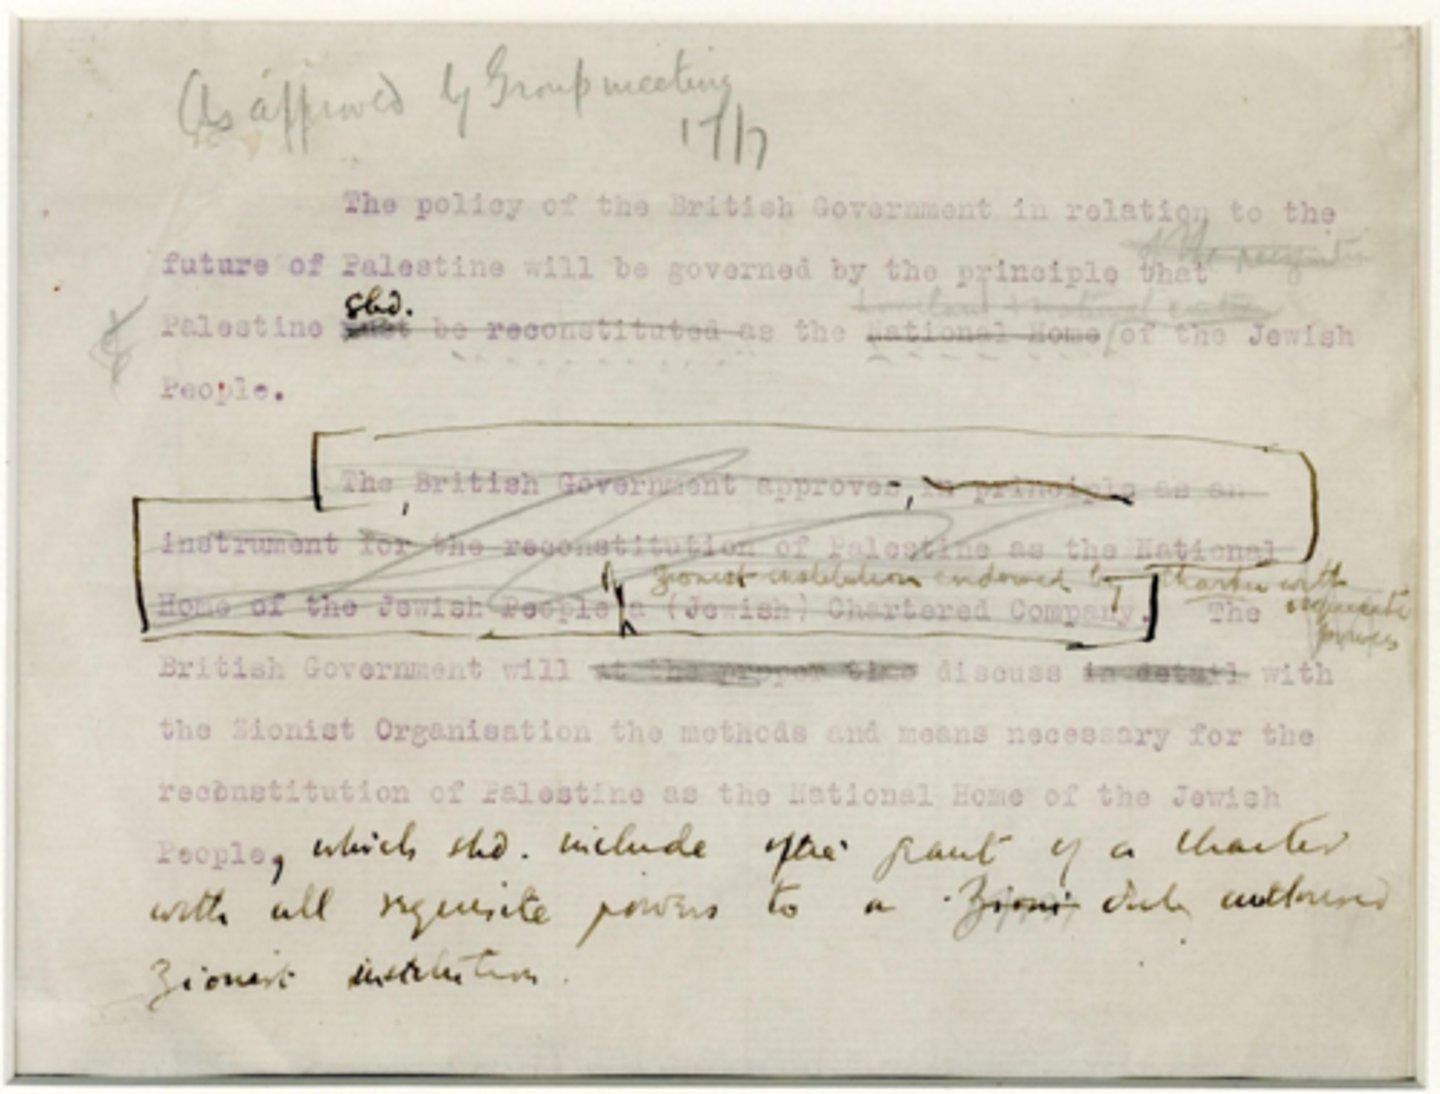 As approved by Group meeting
17/7
The policy of the British Government in relation to the
of the recognition
future of Palestine will be governed by the principle that
shd.
Palestine must be reconstituted as the National Home of the Jewish
People.
The British Government approves, in principle as an
instrument for the reconstitution of Palestine as the National
Zionist institution endowed by charter with
requisite
powers
Home of the Jewish People a (Jewish) Chartered Company. The
British Government will at the proper time discuss in detail with
the Zionist Organisation the methods and means necessary for the
reconstitution of Palestine as the National Home of the Jewish
People, which shd. include the grant of a charter
with all requisite powers to a Zioni duly authorised
Zionist institution.